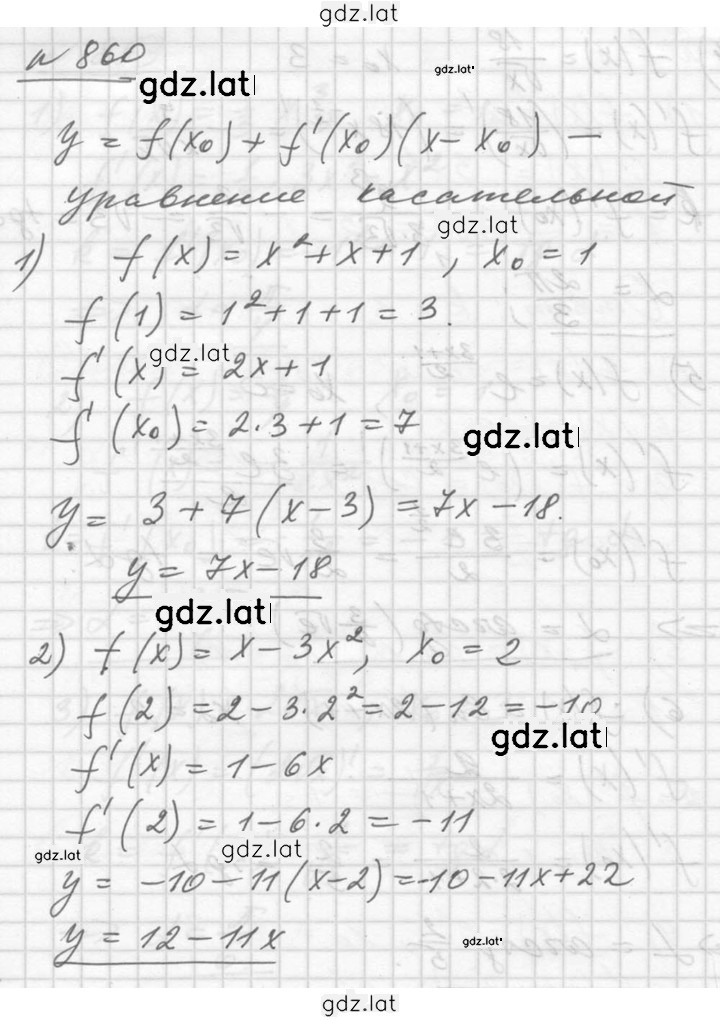 gdz.lat
n 860
gdz.lat
gdz.lat
y = f(x₀) + f'(x₀)(x - x₀) —
уравнение касательной
gdz.lat
1) f(x) = x² + x + 1, x₀ = 1
f(1) = 1² + 1 + 1 = 3.
gdz.lat
f'(x) = 2x + 1
f'(x₀) = 2·3 + 1 = 7
gdz.lat
y = 3 + 7(x - 3) = 7x - 18.
y = 7x - 18
gdz.lat
2) f(x) = x - 3x², x₀ = 2
f(2) = 2 - 3·2² = 2 - 12 = -10
gdz.lat
f'(x) = 1 - 6x
f'(2) = 1 - 6·2 = -11
gdz.lat
gdz.lat
y = -10 - 11(x - 2) = -10 - 11x + 22
y = 12 - 11x
gdz.lat
gdz.lat